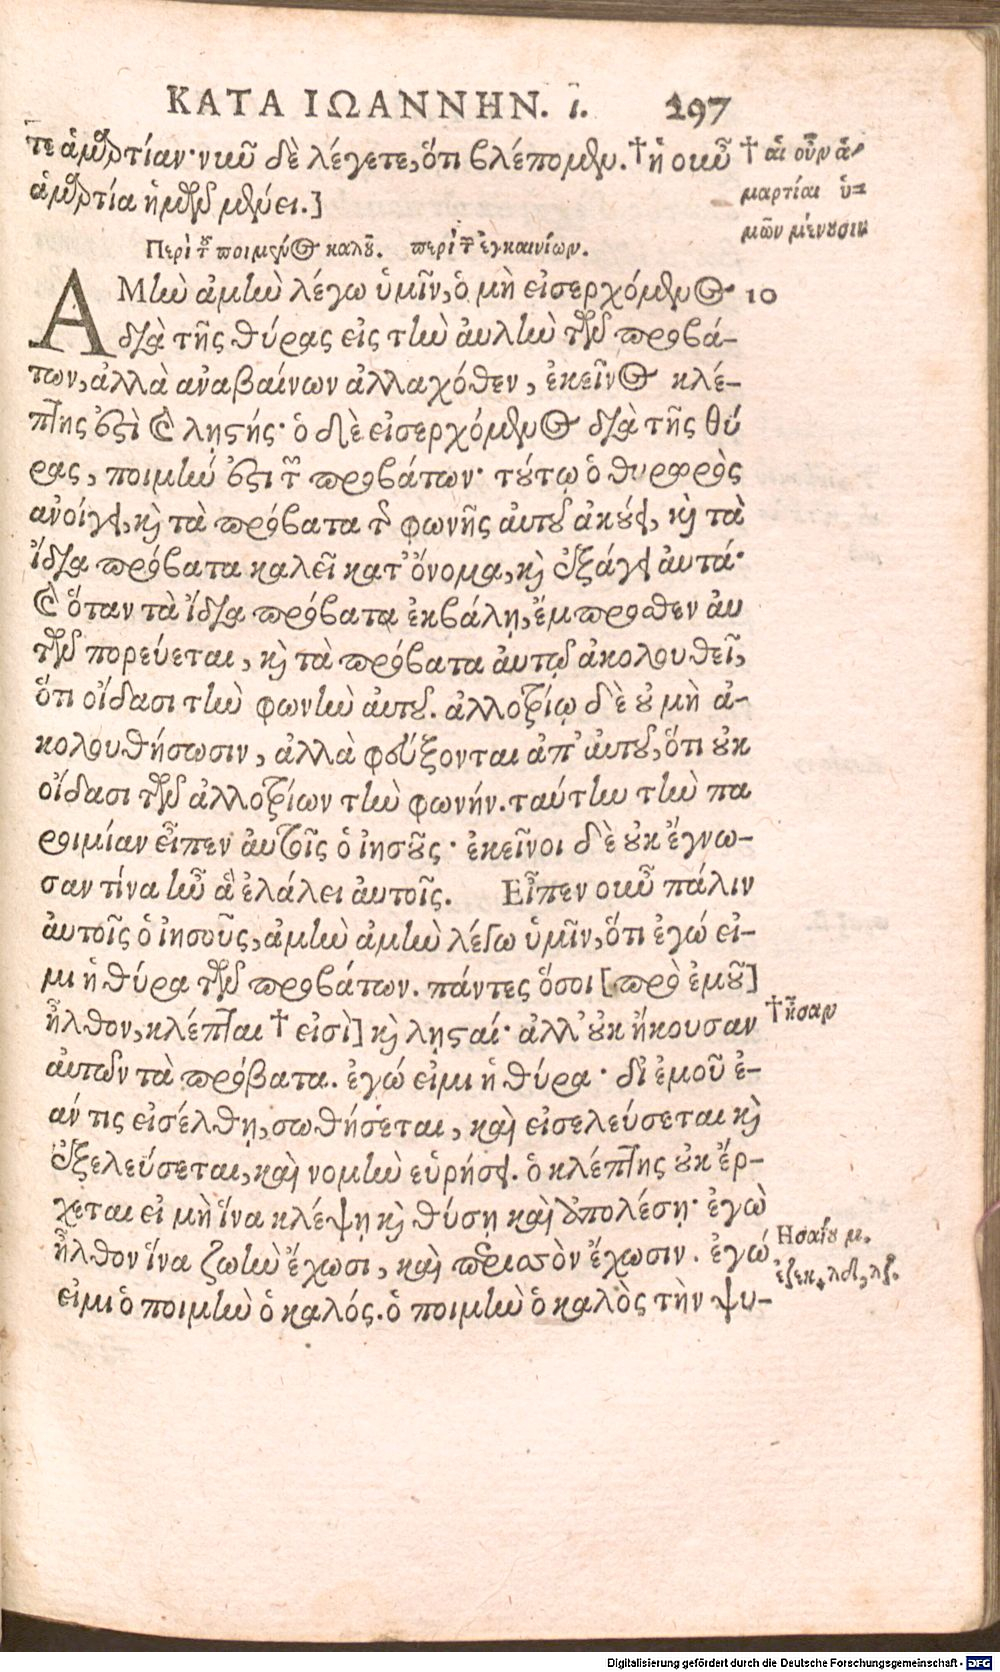 ΚΑΤΑ ΙΩΑΝΝΗΝ. ί. 297
τε ἁμαρτίαν· νῦν δὲ λέγετε, ὅτι βλέπομεν. † ἡ οὖν
ἁμαρτία ἡμῶν μένει.]
† αἱ οὖν ἁ-
μαρτίαι ὑ=
μῶν μένουσιν
Περὶ τοῦ ποιμένος καλοῦ. περὶ τῶν ἐγκαινίων.
ΑΜὴν ἀμὴν λέγω ὑμῖν, ὁ μὴ εἰσερχόμενος 10
διὰ τῆς θύρας εἰς τὴν ἀυλὴν τῶν προβά-
των, ἀλλὰ ἀναβαίνων ἀλλαχόθεν, ἐκεῖνος κλέ-
πτης ἐστὶ καὶ λῃστής· ὁ δὲ εἰσερχόμενος διὰ τῆς θύ
ρας, ποιμήν ἐστι τῶν προβάτων· τούτῳ ὁ θυρωρὸς
ἀνοίγει, καὶ τὰ πρόβατα τῆς φωνῆς ἀυτοῦ ἀκούει, καὶ τὰ
ἴδια πρόβατα καλεῖ κατ' ὄνομα, καὶ ἐξάγει ἀυτά·
καὶ ὅταν τὰ ἴδια πρόβατα ἐκβάλῃ, ἔμπροσθεν ἀυ
τῶν πορεύεται, καὶ τὰ πρόβατα ἀυτῷ ἀκολουθεῖ,
ὅτι οἴδασι τὴν φωνὴν ἀυτοῦ. ἀλλοτρίῳ δὲ οὐ μὴ ἀ-
κολουθήσωσιν, ἀλλὰ φεύξονται ἀπ' ἀυτοῦ, ὅτι οὐκ
οἴδασι τῶν ἀλλοτρίων τὴν φωνήν. ταύτην τὴν πα
ροιμίαν εἶπεν ἀυτοῖς ὁ ἰησοῦς· ἐκεῖνοι δὲ οὐκ ἔγνω-
σαν τίνα ἦν ἃ ἐλάλει ἀυτοῖς. Εἶπεν οὖν πάλιν
ἀυτοῖς ὁ ἰησοῦς, ἀμὴν ἀμὴν λέγω ὑμῖν, ὅτι ἐγώ εἰ-
μι ἡ θύρα τῶν προβάτων. πάντες ὅσοι [πρὸ ἐμοῦ]
ἦλθον, κλέπται † εἰσὶ] καὶ λῃσταί· ἀλλ' οὐκ ἤκουσαν
† ἦσαν
ἀυτῶν τὰ πρόβατα. ἐγώ εἰμι ἡ θύρα· δι' ἐμοῦ ἐ-
άν τις εἰσέλθῃ, σωθήσεται, καὶ εἰσελεύσεται καὶ
ἐξελεύσεται, καὶ νομὴν εὑρήσει. ὁ κλέπτης οὐκ ἔρ-
χεται εἰ μὴ ἵνα κλέψῃ καὶ θύσῃ καὶ ἀπολέσῃ· ἐγὼ
ἦλθον ἵνα ζωὴν ἔχωσι, καὶ περισσὸν ἔχωσιν. ἐγώ
εἰμι ὁ ποιμὴν ὁ καλός. ὁ ποιμὴν ὁ καλὸς τὴν ψυ-
Ησαΐου μ.
ἐζεκ. λδ, λζ.
Digitalisierung gefördert durch die Deutsche Forschungsgemeinschaft - DFG